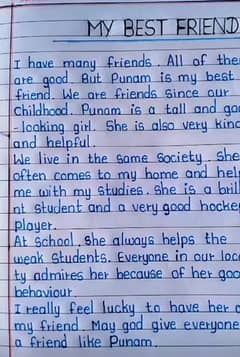 MY BEST FRIEND
I have many friends. All of the
are good. But Punam is my best
friend. We are friends since our
Childhood. Punam is a tall and go
-looking girl. She is also very kind
and helpful.
We live in the same society. She
often comes to my home and help
me with my studies. She is a bril
nt student and a very good hocke
player.
At school, she always helps the
weak students. Everyone in our loc
ty admires her because of her goo
behaviour.
I really feel lucky to have her a
my friend. May god give everyone
a friend like Punam.